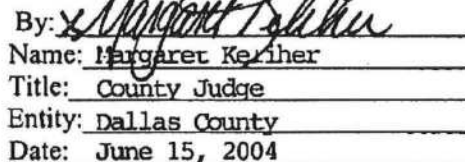 By: x Margaret Keliher
Name: Margaret Keliher
Title: County Judge
Entity: Dallas County
Date: June 15, 2004